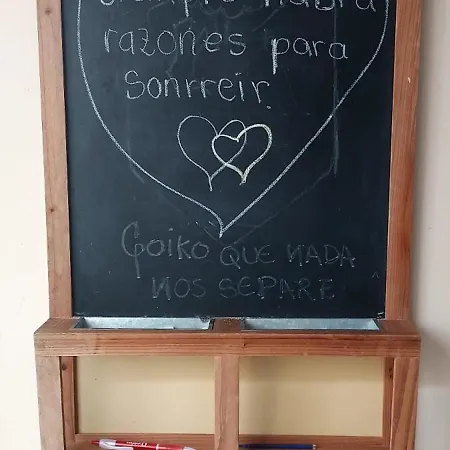 siempre habrá
razones para
sonrreir.
Goiko QUE NADA
NOS SEPARE